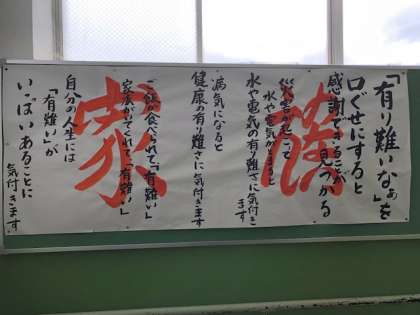 「有り難いなぁ」を
口ぐせにすると
感謝できることが
見つかる
災害が起こって
水や電気が止まると
水や電気の有難さに気付き
ます
病気になると
健康の有り難さに気付きます
ご飯が食べられて「有難い」
家族がいてくれて「有難い」
自分の人生には
「有難い」が
いっぱいあることに
気付きます